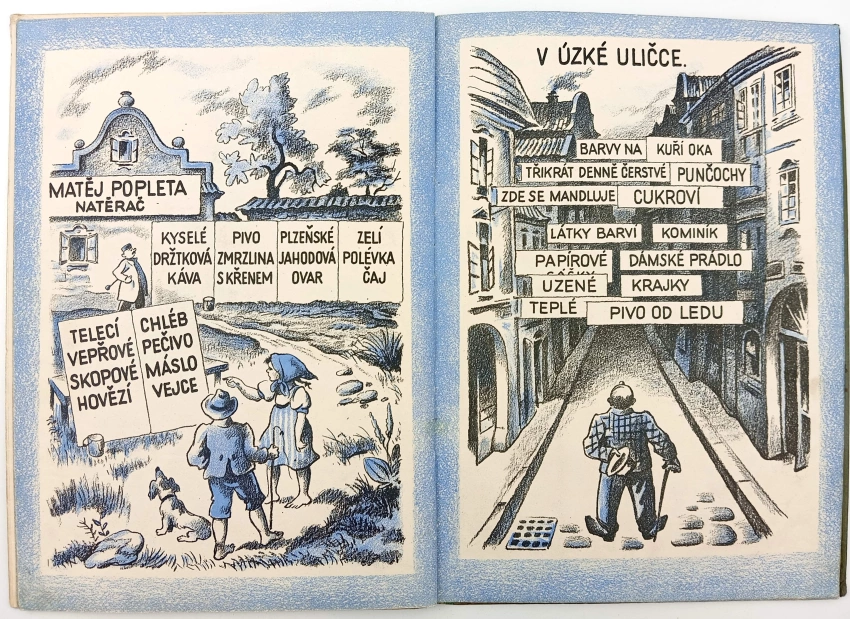 MATĚJ POPLETA
NATĚRAČ
KYSELÉ
DRŽTKOVÁ
KÁVA
PIVO
ZMRZLINA
S KŘENEM
PLZEŇSKÉ
JAHODOVÁ
OVAR
ZELÍ
POLÉVKA
ČAJ
TELECÍ
VEPŘOVÉ
SKOPOVÉ
HOVĚZÍ
CHLÉB
PEČIVO
MÁSLO
VEJCE
V ÚZKÉ ULIČCE.
BARVY NA KUŘÍ OKA
TŘIKRÁT DENNĚ ČERSTVÉ PUNČOCHY
ZDE SE MANDLUJE CUKROVÍ
LÁTKY BARVÍ KOMINÍK
PAPÍROVÉ DÁMSKÉ PRÁDLO
SÁČKY
UZENÉ KRAJKY
TEPLÉ PIVO OD LEDU